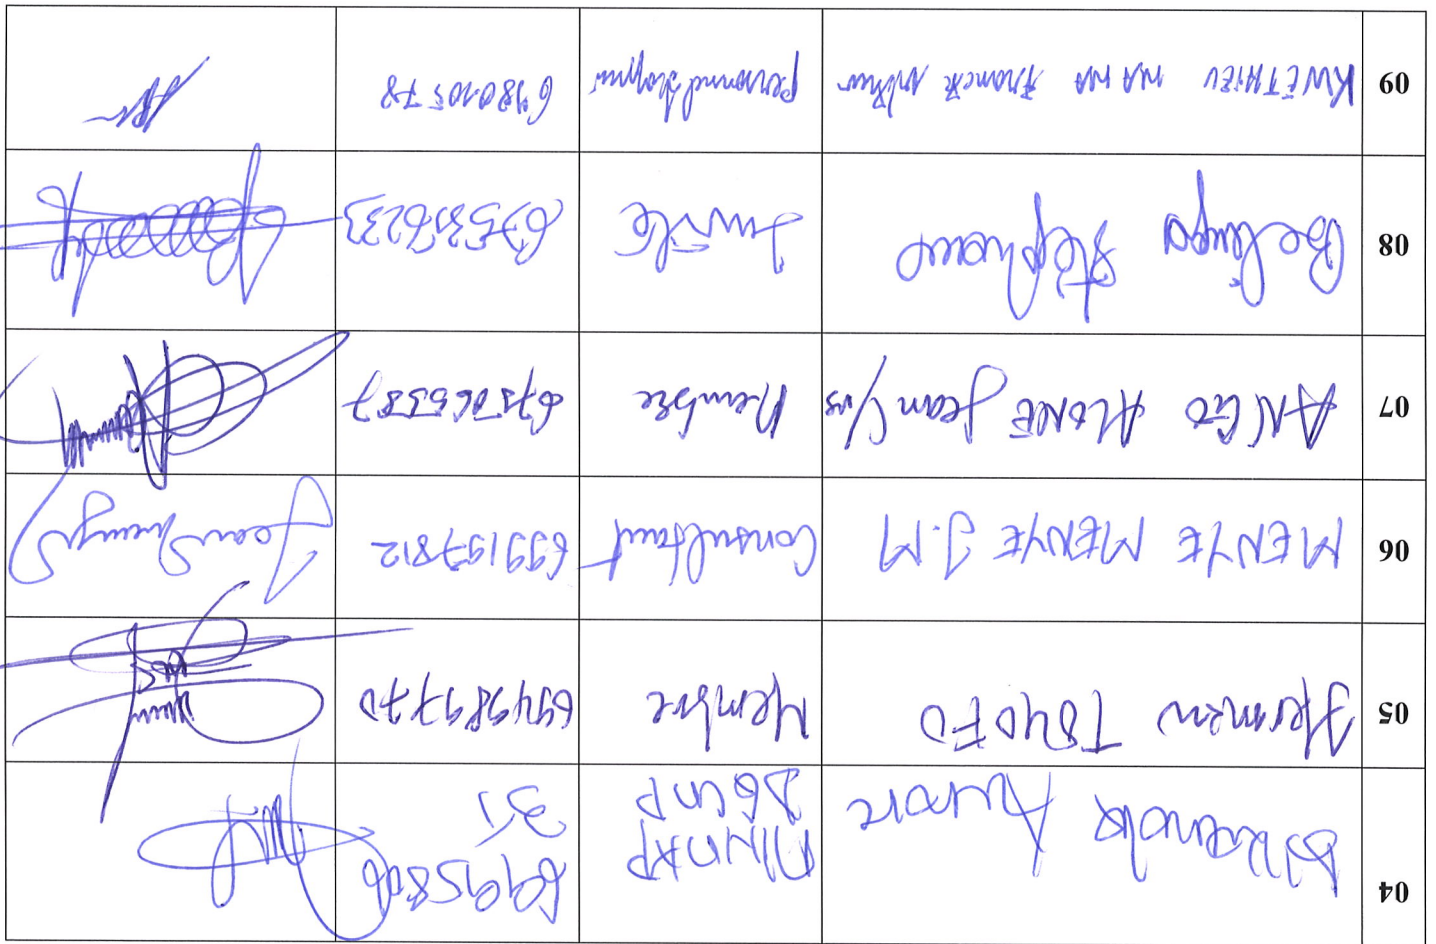 04 Dikanda Aurore MINMAP DGCMP 69995806 35
05 Hermen TSYOFO Membre 694989770
06 MENYE MENYE J.M Consultant 699197812
07 ANGO ALONE Jean Yves Membre
08 Belinga Stéphane Invité 675376233
09 KWETHIEU NANA Franck Arthur personnel d'appui 698010578